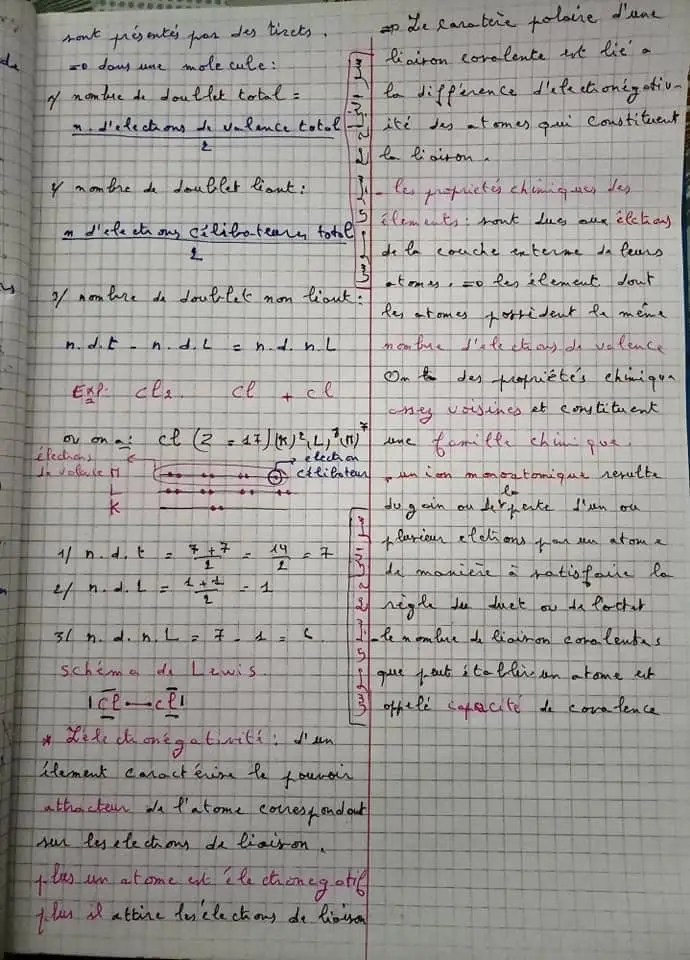 sont présentés par des tirets.
=> dans une molecule:
1/ nombre de doublet total =
n. d'electrons de valence total
2
2/ nombre de doublet liant:
n d'electrons célibateurs total
2
3/ nombre de doublet non liant:
n.d.t - n.d.L = n.d.n.L
Exp: Cl2. Cl + Cl
2
ou on a: Cl (Z = 17) (K)2 (L)8 (M)7
électrons
de valence M
electron
célibateur
L
K
1/ n.d.t = 7+7/2 = 14/2 = 7
2/ n.d.L = 1+1/2 = 1
3/ n.d.n.L = 7 - 1 = 6
schéma de Lewis.
|Cl — Cl|
* L'électronégativité: d'un
élement caractérise le pouvoir
attracteur de l'atome correspondant
sur les electrons de liaison.
plus un atome est électronegatif
plus il attire les électrons de liaison
=> Le caratère polaire d'une
liaison covalente est lié a
la différence d'electronégativ-
ité des atomes qui constituent
la liaison.
- les propriétés chimiques des
élements: sont dues aux élctions
de la couche externe de leurs
atomes. => les élement dont
les atomes possident le même
nombre d'elections de valence
On des propriétés chimiqu
assez voisines et constituent
une famille chimique.
. un ion monoatomique resulte
du gain ou de la perte d'un ou
plusieur elctions par un atome
de manière à satisfaire la
règle du duet ou de l'octet
- le nombre de liaison covalentes
que peut établir un atome est
appelé capacité de covalence